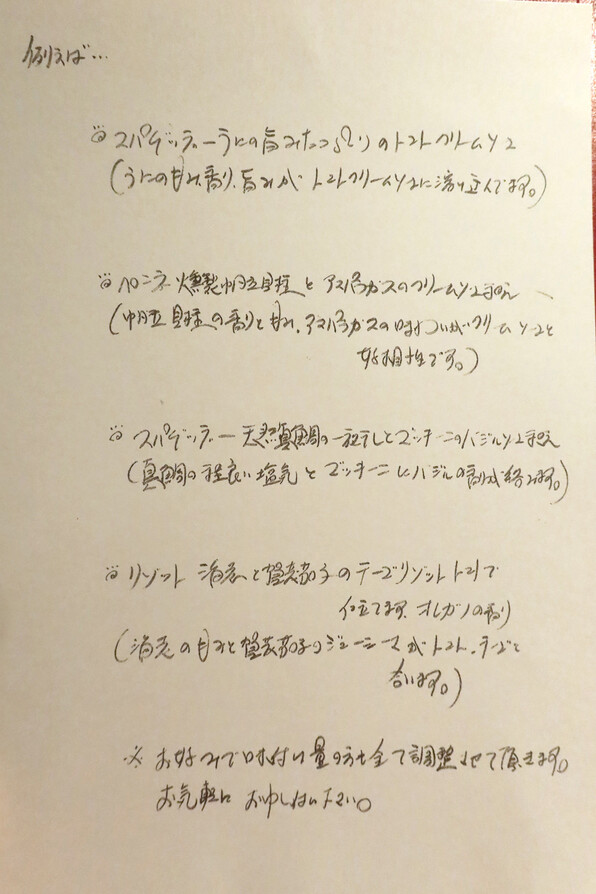 例えば…
スパゲッティー うにの旨みたっぷりのトマトクリームソース
(うにの甘み、香り、旨みがトマトクリームソースに溶け込んでます。)
ペンネ 燻製帆立貝柱とアスパラガスのクリームソース和え
(帆立貝柱の香りと甘み、アスパラガスの味わいがクリームソースと
好相性です。)
スパゲッティー 天然真鯛の一夜干しとズッキーニのバジルソース和え
(真鯛の程良い塩気とズッキーニにバジルの香りが絡みます。)
リゾット 海老と賀茂茄子のチーズリゾット トマトで
仕立てます。オレガノの香り
(海老の甘みと賀茂茄子のジューシーさがトマト、チーズと
合います。)
※ お好みで味付け、量の方も全て調整させて頂きます。
お気軽にお申し付け下さい。